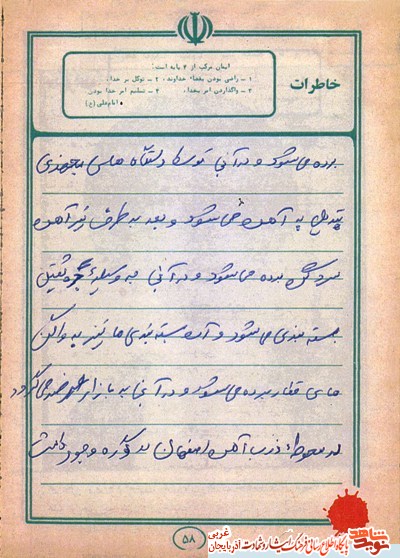 خاطرات
ایمان مرکب از ۴ پایه است:
۱ - راضی بودن بقضاء خداوند. ۲ - توکل بر خدا.
۳ - واگذاردن امر بخدا. ۴ - تسلیم امر خدا بودن
امام علی (ع)
برده می‌شود و در آنجا توسط دستگاه های مجهزی
تبدیل به آهن می‌شود و بعد به طرف تیر آهن
سرد کن برده می‌شود و در آنجا به وسیلهٔ ثقیل
بسته بندی می‌شود و آن بسته بندی ها نیز به واگن
های قطار برده می‌شود و در آنجا به بازار عرضه می‌گردد
در محوطهٔ ذوب آهن اصفهان کوره وجود داشت
۵۸
نوید شاهد
پایگاه اطلاع رسانی فرهنگ ایثار و شهادت آذربایجان غربی